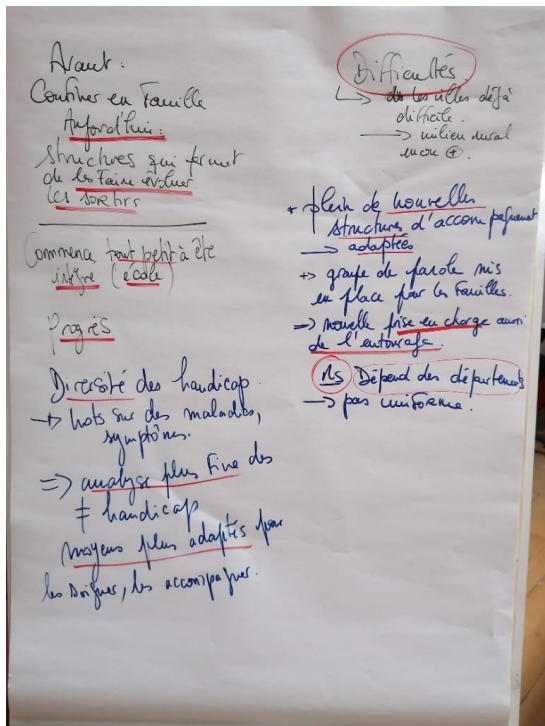 Avant :
Confiner en Famille
Aujord'hui :
Structures qui permet
de les Faire évoluer
les sortirs
Commence tout petit à être
intégre (école)
Progrès
Diversité des handicap.
→ Mots sur des maladies,
symptômes.
=> analyse plus Fine des
≠ handicap
moyens plus adaptés pour
les soigner, les accompagner.
Difficultés
↳ les villes déjà
difficile.
→ milieu rural
encore +.
+ plein de nouvelles
structures d'accompagnement
→ adaptées
groupe de parole mis
en place pour les Familles.
=> nouvelle prise en charge aussi
de l'entourage.
Ms Dépend des départements
→ pas uniforme.